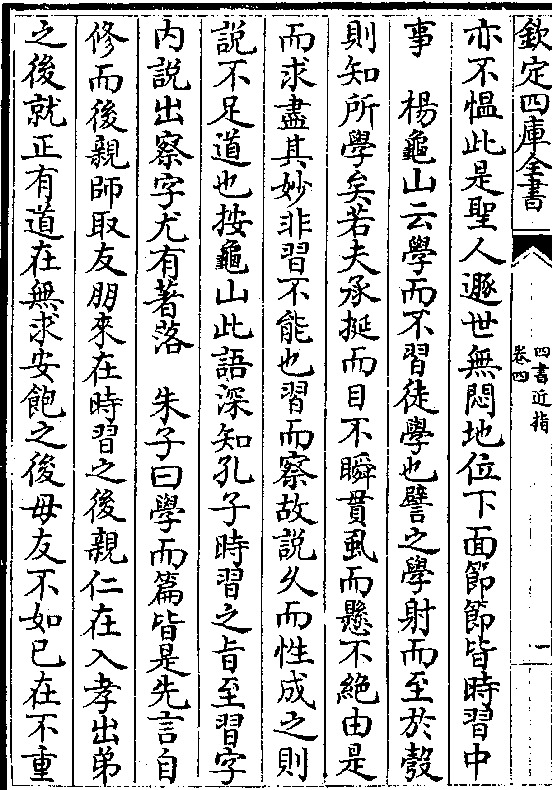 欽定四庫全書
四書近指
卷四
一
亦不慍此是聖人遯世無悶地位下面節節皆時習中
事　楊龜山云學而不習徒學也譬之學射而至於彀
則知所學矣若夫承挺而目不瞬貫虱而懸不絶由是
而求盡其妙非習不能也習而察故説久而性成之則
説不足道也按龜山此語深知孔子時習之旨至習字
内説出察字尤有著落　朱子曰學而篇皆是先言自
修而後親師取友朋來在時習之後親仁在入孝出弟
之後就正有道在無求安飽之後毋友不如已在不重